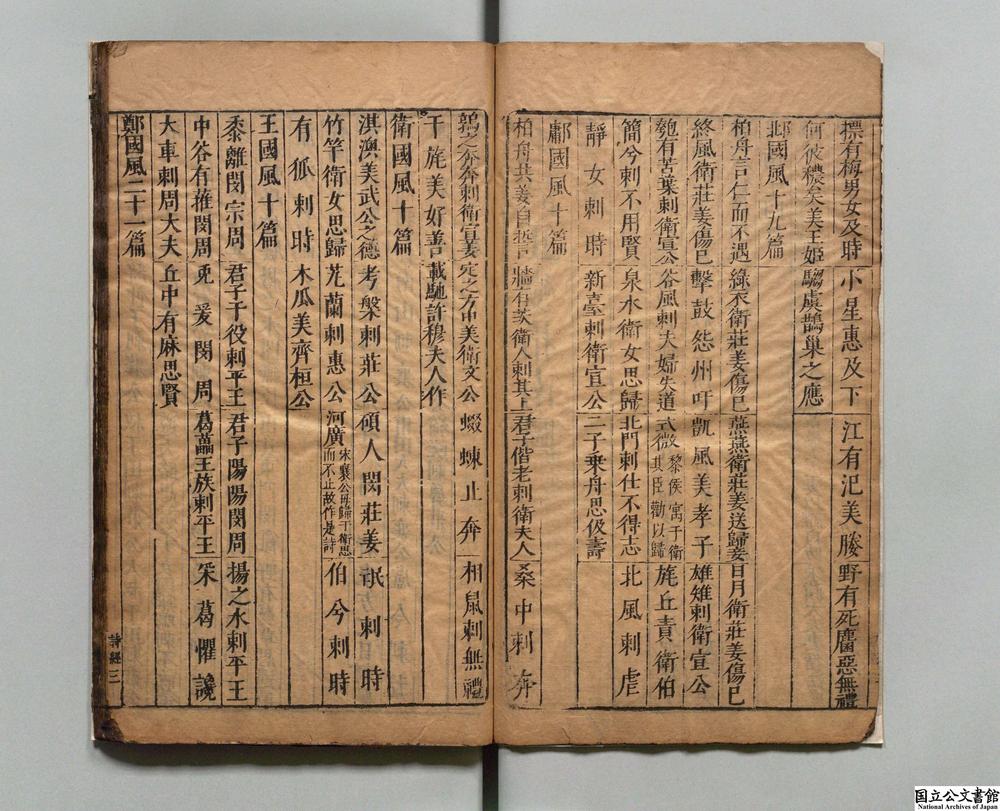 摽有梅男女及時 小星惠及下 江有汜美媵 野有死麕惡無禮
何彼穠矣美王姬 騶虞鵲巢之應
邶國風十九篇
柏舟言仁而不遇 綠衣衛莊姜傷已 燕燕衛莊姜送歸妾 日月衛莊姜傷已
終風衛莊姜傷已 擊鼓怨州吁 凱風美孝子 雄雉刺衛宣公
匏有苦葉刺衛宣公 谷風刺夫婦失道 式微黎侯寓于衛其臣勸以歸 旄丘責衛伯
簡兮刺不用賢 泉水衛女思歸 北門刺仕不得志 北風刺虐
靜女刺時 新臺刺衛宣公 二子乘舟思伋壽
鄘國風十篇
柏舟共姜自誓 牆有茨衛人刺其上 君子偕老刺衛夫人 桑中刺奔
鶉之奔奔刺衛宣姜 定之方中美衛文公 蝃蝀止奔 相鼠刺無禮
干旄美好善 載馳許穆夫人作
衛國風十篇
淇澳美武公之德 考槃刺莊公 碩人閔莊姜 氓刺時
竹竿衛女思歸 芄蘭刺惠公 河廣宋襄公母歸于衛思而不止故作是詩 伯兮刺時
有狐刺時 木瓜美齊桓公
王國風十篇
黍離閔宗周 君子于役刺平王 君子陽陽閔周 揚之水刺平王
中谷有蓷閔周 兎爰閔周 葛藟王族刺平王 采葛懼讒
大車刺周大夫 丘中有麻思賢
鄭國風二十一篇
詩經 三
国立公文書館
National Archives of Japan